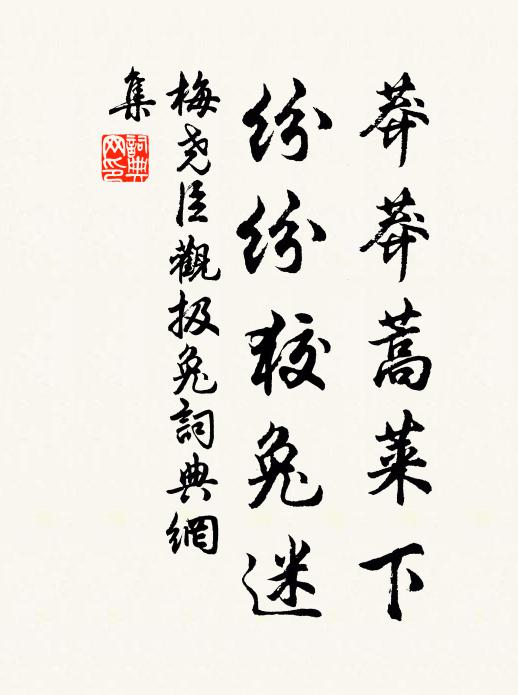 莽莽蒿莱下
纷纷狡兔迷
梅尧臣觀扱兔詞典網
集
詞典
网印